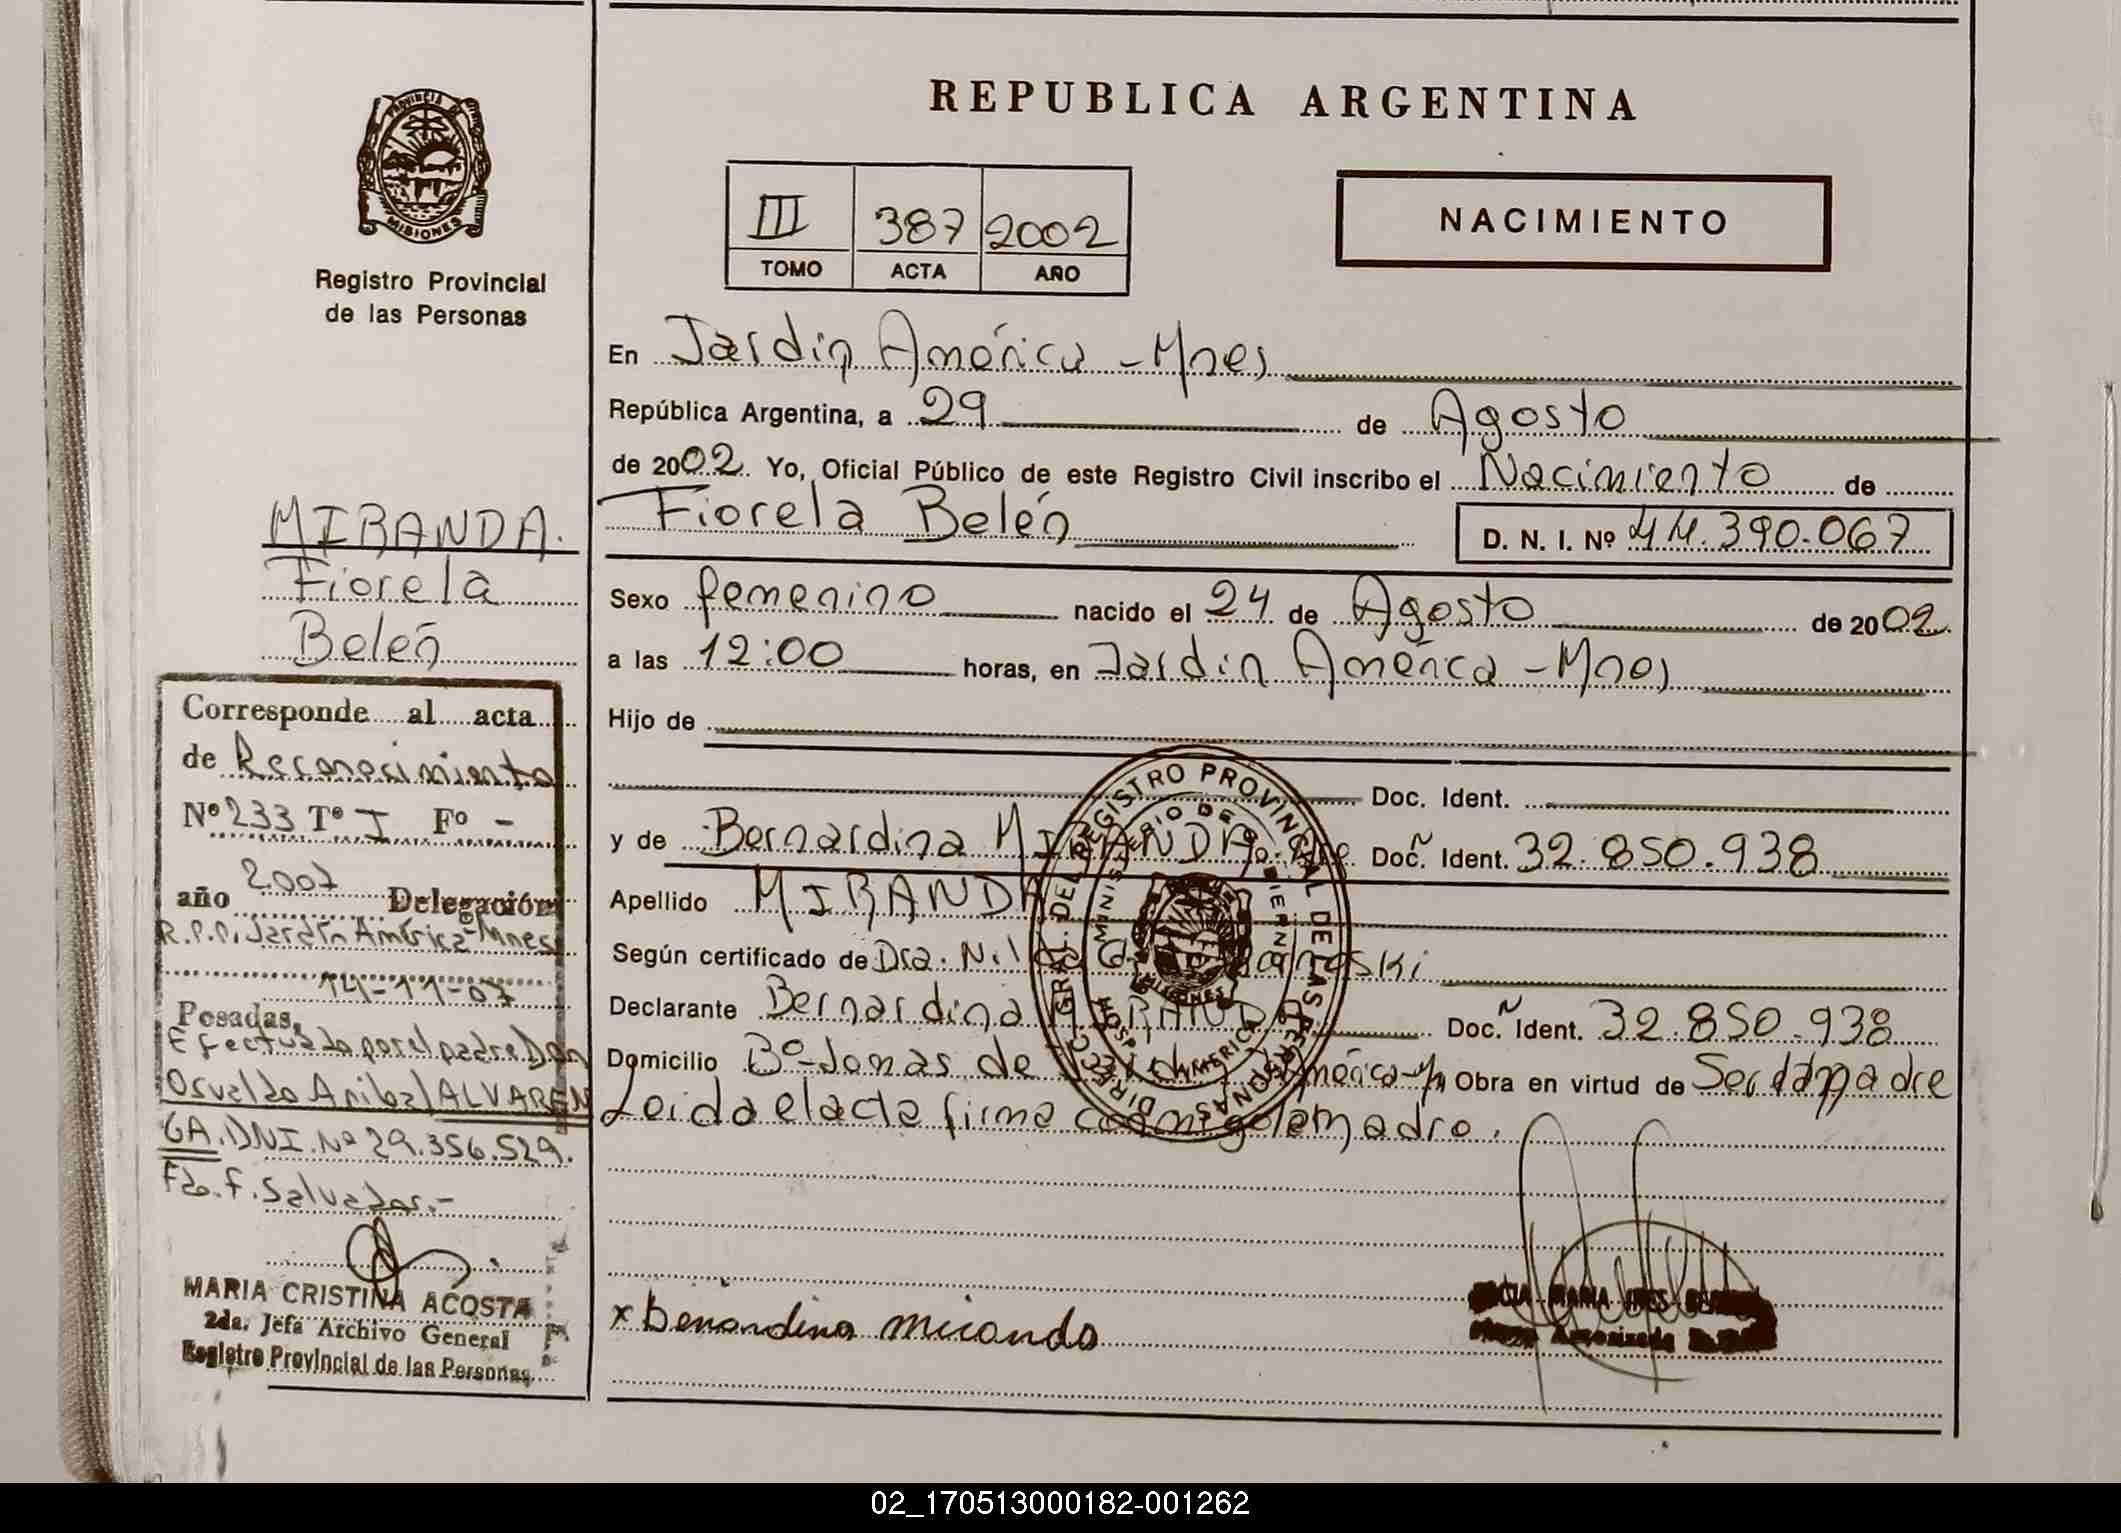 REPUBLICA ARGENTINA
PROVINCIA DE
MISIONES
Registro Provincial
de las Personas
III 387 2002
TOMO ACTA AÑO
NACIMIENTO
En Jardín América - Mnes
República Argentina, a 29 de Agosto
de 2002. Yo, Oficial Público de este Registro Civil inscribo el Nacimiento de
Fiorela Belén D. N. I. Nº 44.390.067
Sexo femenino nacido el 24 de Agosto de 2002
a las 12:00 horas, en Jardín América - Mnes
Hijo de
Doc. Ident.
y de Bernardina MIRANDA Doc. Ident. 32.850.938
Apellido MIRANDA
Según certificado de Dra.
Declarante Bernardina MIRANDA Doc. Ident. 32.850.938
Domicilio Bº América Obra en virtud de Ser la madre
Leida el acta firma conmigo la madre.
x bernardina miranda
DIREC. GRAL. DEL REGISTRO PROVINCIAL DE LAS PERSONAS
MINISTERIO DE GOBIERNO
MISIONES
MIRANDA.
Fiorela
Belén
Corresponde al acta
de Reconocimiento
Nº 233 Tº I Fº -
año 2007 Delegación
R.P.P. Jardín América - Mnes
14-11-07
Posadas,
Efectuado por el padre Don
Osvaldo Anibal ALVAREN
GA. DNI. Nº 29.356.529.
Fdo. F. Salvador.-
MARIA CRISTINA ACOSTA
2da. Jefa Archivo General
Registro Provincial de las Personas
02_170513000182-001262